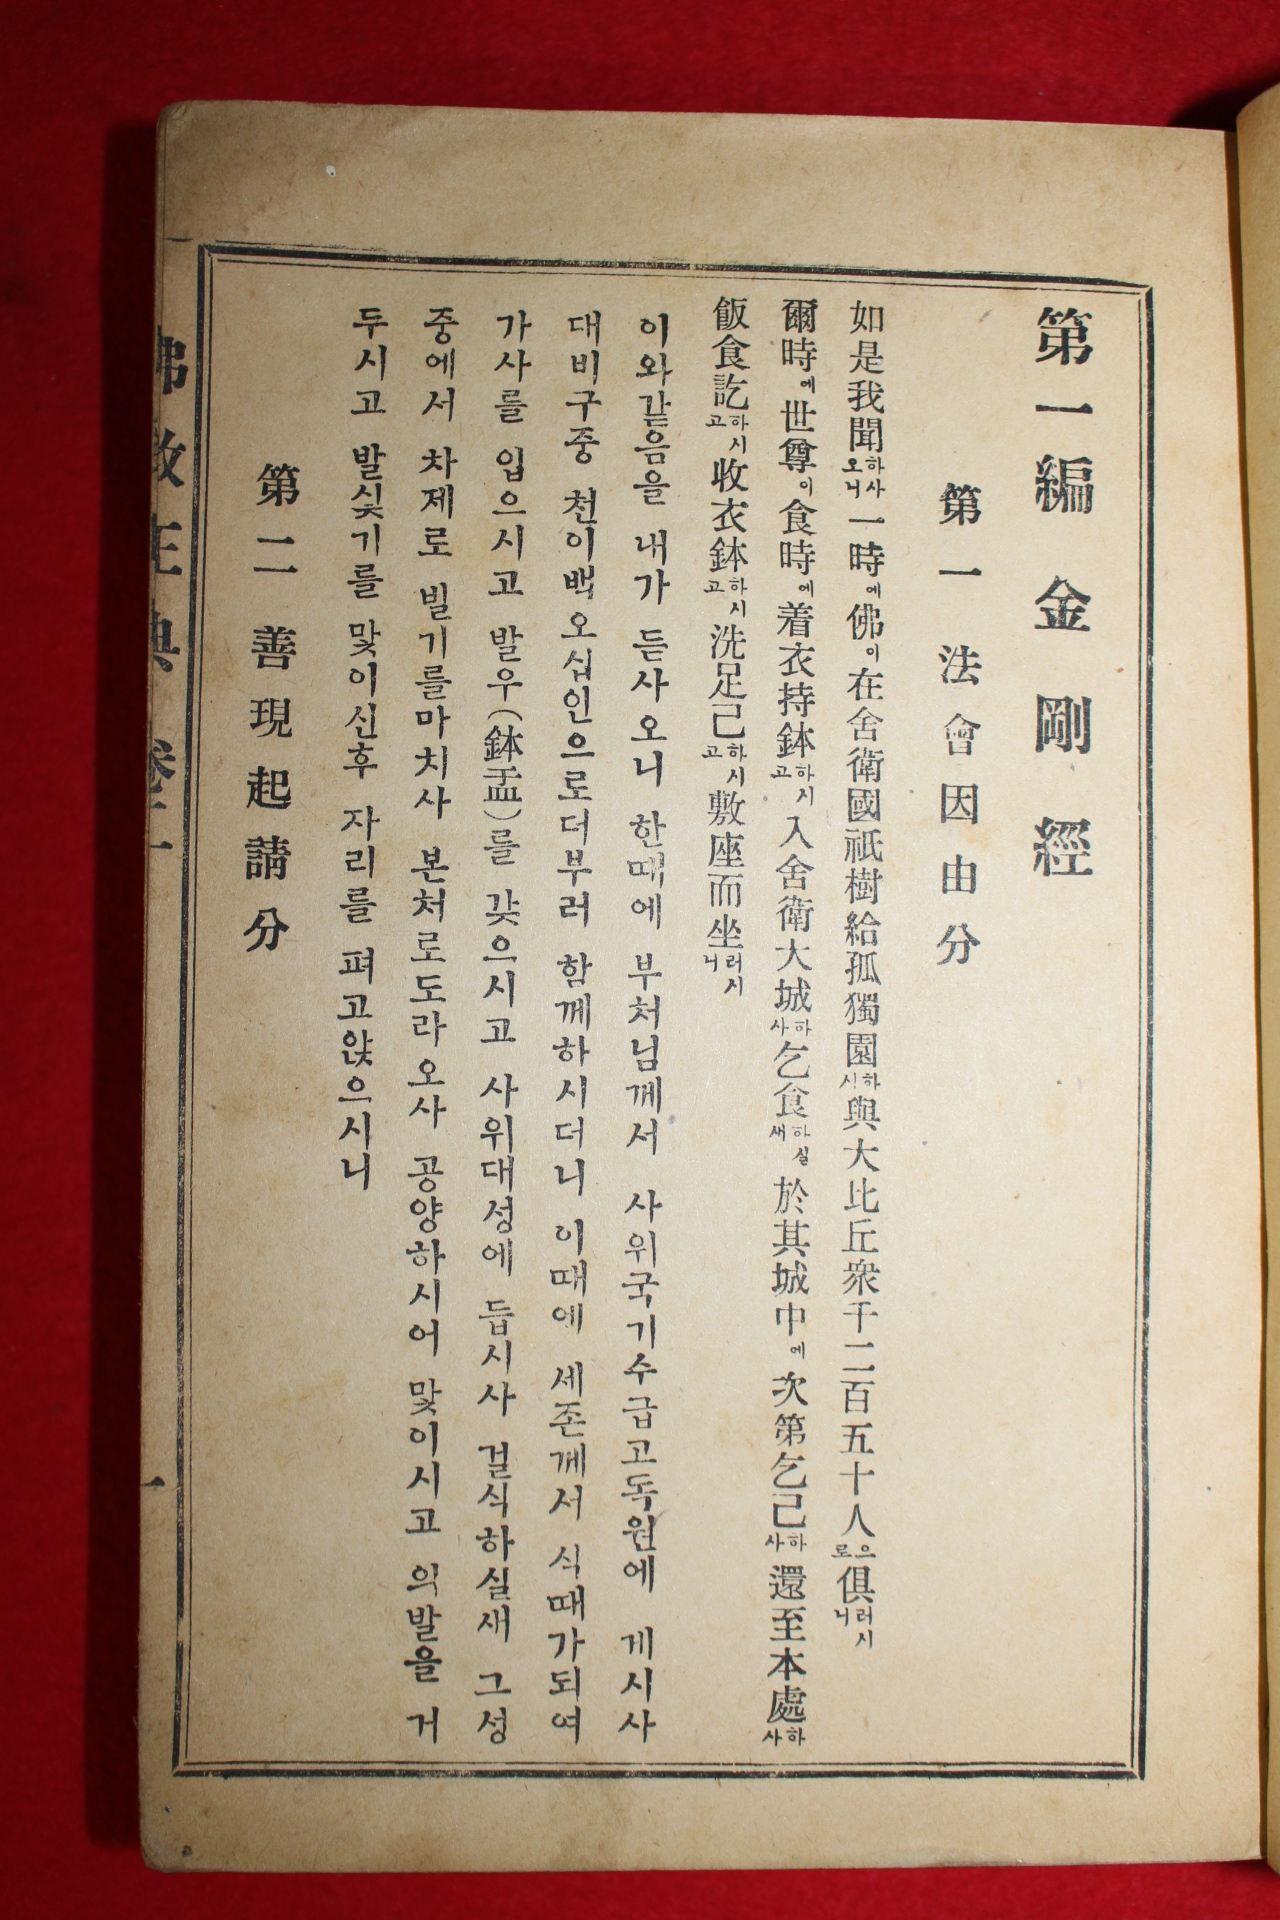 第一編 金剛經
第一 法會因由分
如是我聞하사오니一時에佛이在舍衛國祇樹給孤獨園하시與大比丘衆千二百五十人으로俱러시니
爾時에世尊이食時에着衣持鉢하시고入舍衛大城하사乞食하실새於其城中에次第乞己하사還至本處하사
飯食訖하시고收衣鉢하시고洗足己하시고敷座而坐러시니
이와같음을 내가 듣사오니 한때에 부처님께서 사위국기수급고독원에 게시사
대비구중 천이백오십인으로더부러 함께하시더니 이때에 세존께서 식때가되여
가사를 입으시고 발우(鉢盂)를 갖으시고 사위대성에 듭시사 걸식하실새 그성
중에서 차제로 빌기를마치사 본처로도라오사 공양하시어 맟이시고 의발을 거
두시고 발싳기를 맟이신후 자리를 펴고앉으시니
第二 善現起請分
佛敎正典 卷二
一